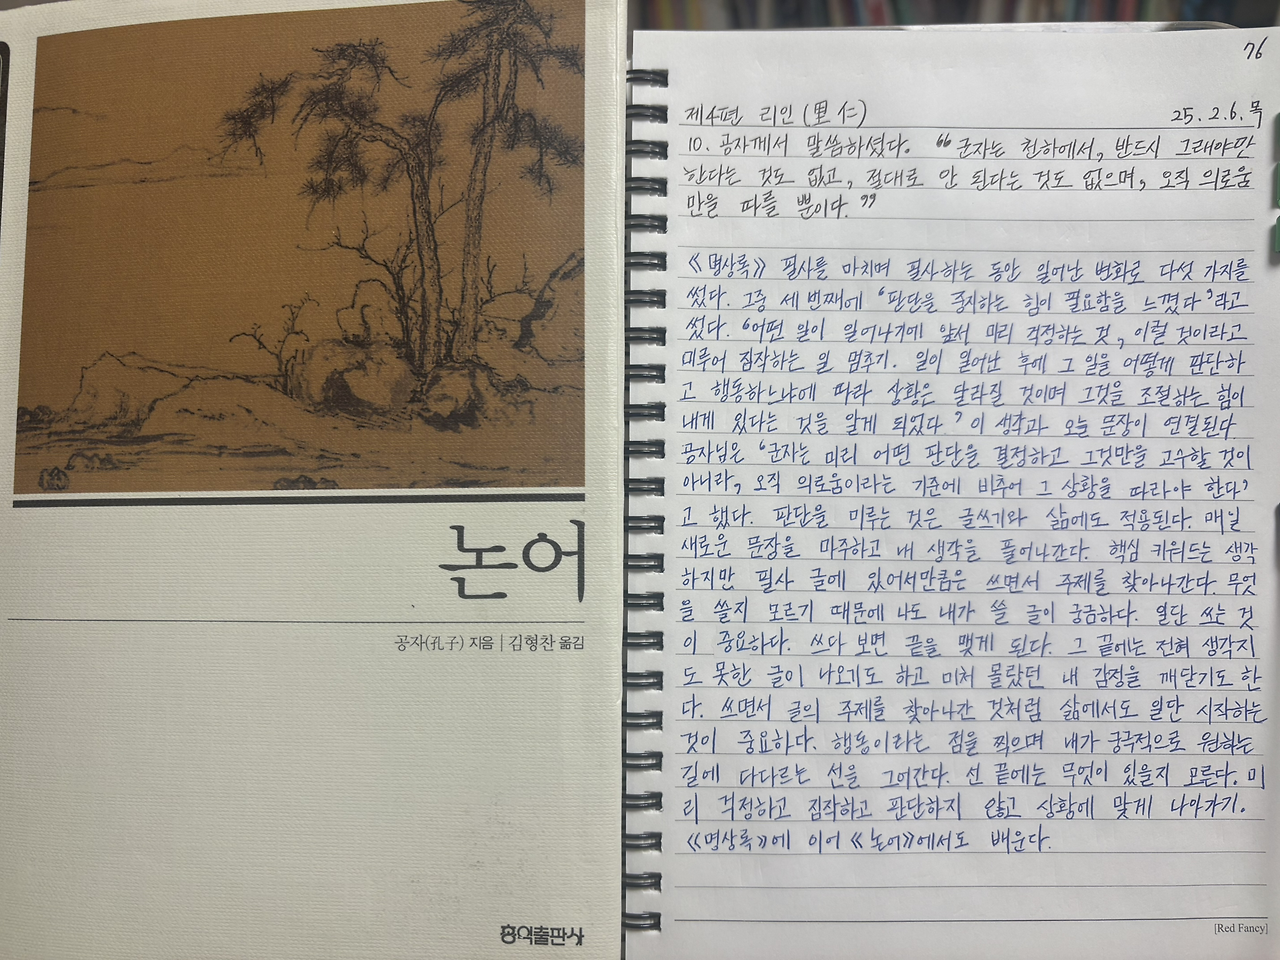 논어
공자(孔子) 지음 | 김형찬 옮김
홍익출판사
76
제4편 리인(里仁) 25. 2. 6. 목
10. 공자께서 말씀하셨다. “군자는 천하에서, 반드시 그래야만
한다는 것도 없고, 절대로 안 된다는 것도 없으며, 오직 의로움
만을 따를 뿐이다.”
《명상록》 필사를 마치며 필사하는 동안 일어난 변화로 다섯 가지를
썼다. 그중 세 번째에 ‘판단을 중지하는 힘이 필요함을 느꼈다’라고
썼다. ‘어떤 일이 일어나기에 앞서 미리 걱정하는 것, 이럴 것이라고
미루어 짐작하는 일 멈추기. 일이 일어난 후에 그 일을 어떻게 판단하
고 행동하느냐에 따라 상황은 달라질 것이며 그것을 조절하는 힘이
내게 있다는 것을 알게 되었다.’ 이 생각과 오늘 문장이 연결된다.
공자님은 ‘군자는 미리 어떤 판단을 결정하고 그것만을 고수할 것이
아니라, 오직 의로움이라는 기준에 비추어 그 상황을 따라야 한다’
고 했다. 판단을 미루는 것은 글쓰기와 삶에도 적용된다. 매일
새로운 문장을 마주하고 내 생각을 풀어나간다. 핵심 키워드는 생각
하지만 필사 글에 있어서만큼은 쓰면서 주제를 찾아나간다. 무엇
을 쓸지 모르기 때문에 나도 내가 쓸 글이 궁금하다. 일단 쓰는 것
이 중요하다. 쓰다 보면 끝을 맺게 된다. 그 끝에는 전혀 생각지
도 못한 글이 나오기도 하고 미처 몰랐던 내 감정을 깨닫기도 한
다. 쓰면서 글의 주제를 찾아나간 것처럼 삶에서도 일단 시작하는
것이 중요하다. 행동이라는 점을 찍으며 내가 궁극적으로 원하는
길에 다다르는 선을 그어간다. 선 끝에는 무엇이 있을지 모른다. 미
리 걱정하고 짐작하고 판단하지 않고 상황에 맞게 나아가기.
《명상록》에 이어 《논어》에서도 배운다.
[Red Fancy]